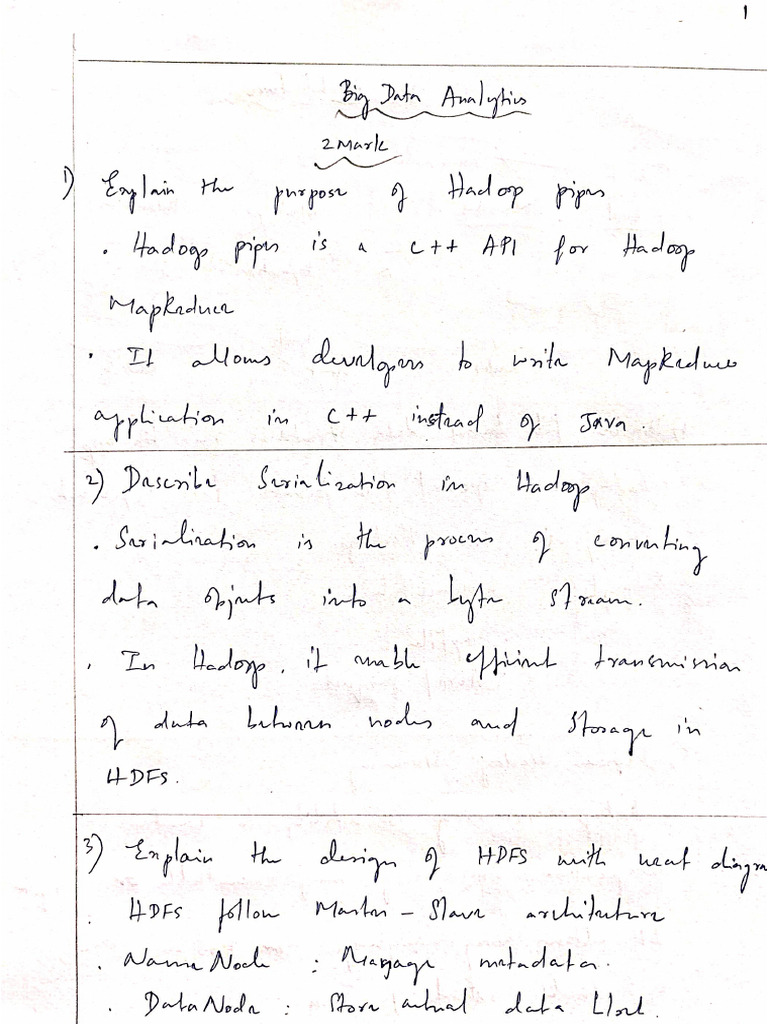 1
Big Data Analytics
2 Mark
1) Explain the purpose of Hadoop pipes
. Hadoop pipes is a C++ API for Hadoop
MapReduce
. It allows developers to write MapReduce
application in C++ instead of Java.
2) Describe Serialization in Hadoop
. Serialization is the process of converting
data objects into a byte stream.
. In Hadoop, it enable efficient transmission
of data between nodes and storage in
HDFS.
3) Explain the design of HDFS with neat diagra
. HDFS follow Master - Slave architecture
. NameNode : Manage metadata.
. DataNode : Store actual data block.